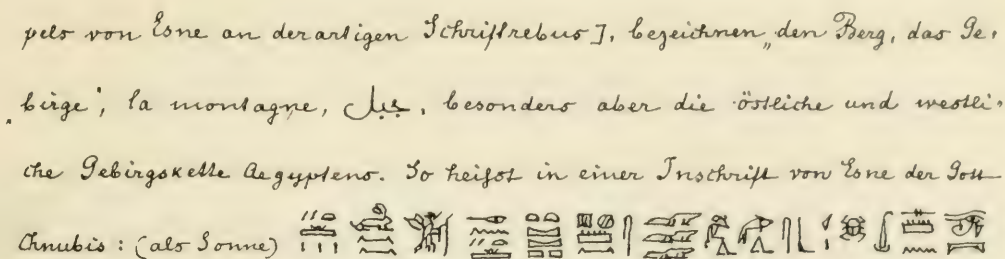 pels von Esne an derartigen Schriftrebus], bezeichnen „den Berg, das Ge-
„birge‘, la montagne, جبل, besonders aber die östliche und westli-
che Gebirgskette Aegyptens. So heifst in einer Inschrift von Esne der Gott
Chnubis: (als Sonne)